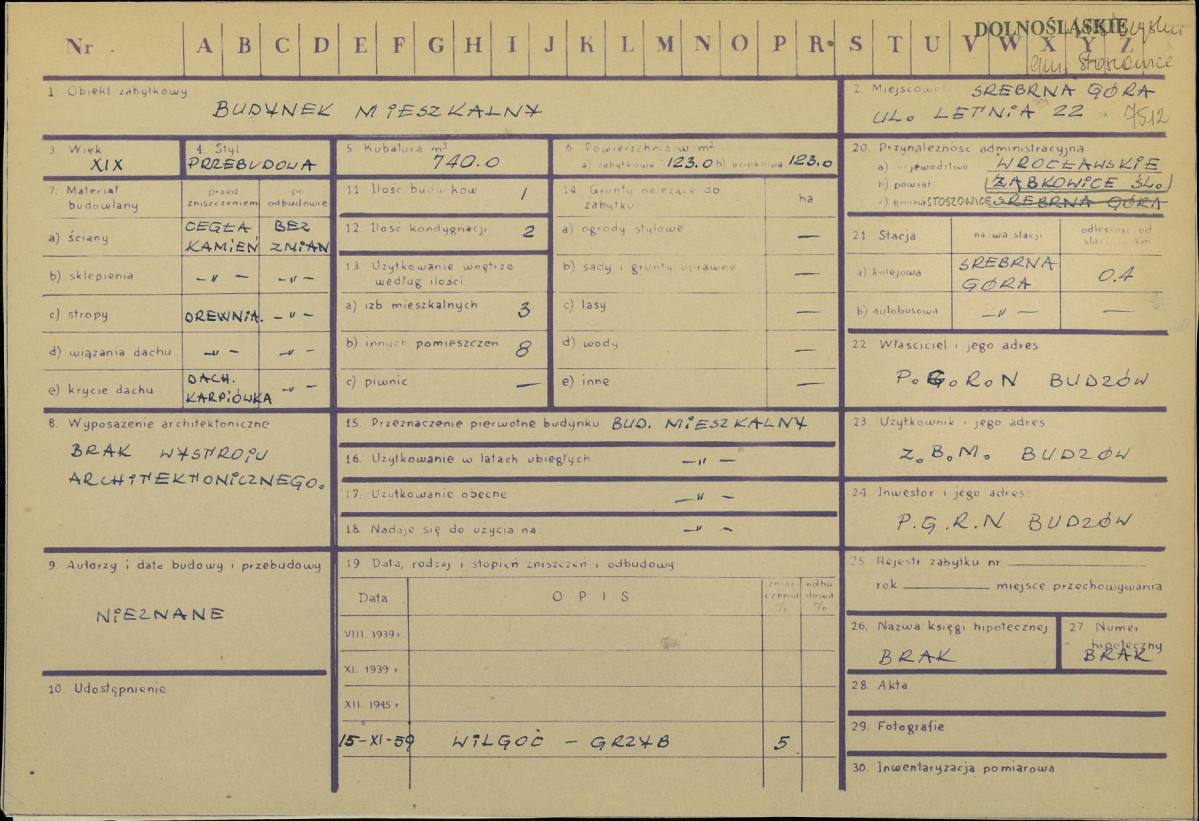 DOLNOŚLĄSKIE
Nr A B C D E F G H I J K L M N O P R S T U V W X Y Z
gm. Stoszowice
1. Obiekt zabytkowy
BUDYNEK MIESZKALNY
2. Miejscowość SREBRNA GÓRA
UL. LETNIA 22
7512
3. Wiek
XIX
4. Styl
PRZEBUDOWA
5. Kubatura m³
740.0
6. Powierzchnia w m²
a) zabytkowa 123.0 b) użytkowa 123.0
20. Przynależność administracyjna
a) województwo WROCŁAWSKIE
b) powiat ZĄBKOWICE ŚL.
c) gmina STOSZOWICE SREBRNA GÓRA
7. Materiał budowlany
przed zniszczeniem
po odbudowie
a) ściany CEGŁA KAMIEŃ BEZ ZMIAN
b) sklepienia -„- -„-
c) stropy DREWNIA. -„-
d) wiązania dachu -„- -„-
e) krycie dachu DACH. KARPIÓWKA -„-
11. Ilość budynków 1
12. Ilość kondygnacji 2
13. Użytkowanie wnętrza według ilości
a) izb mieszkalnych 3
b) innych pomieszczeń 8
c) piwnic —
14. Grunty należące do zabytku
ha
a) ogrody stylowe —
b) sady i grunty uprawne —
c) lasy —
d) wody —
e) inne —
21. Stacja
nazwa stacji
odległość od stacji km
a) kolejowa SREBRNA GÓRA 0.4
b) autobusowa -„- —
22. Właściciel i jego adres
P.G.R.N BUDZÓW
8. Wyposażenie architektoniczne
BRAK WYSTROJU
ARCHITEKTONICZNEGO.
15. Przeznaczenie pierwotne budynku BUD. MIESZKALNY
16. Użytkowanie w latach ubiegłych -„-
17. Użytkowanie obecne -„-
18. Nadaje się do użycia na: -„-
23. Użytkownik i jego adres
Z.B.M. BUDZÓW
24. Inwestor i jego adres:
P.G.R.N BUDZÓW
9. Autorzy i data budowy i przebudowy
NIEZNANE
10. Udostępnienie
19. Data, rodzaj i stopień zniszczeń i odbudowy
Data
OPIS
zniszczenia %
odbudowa %
VIII. 1939 r.
XI. 1939 r.
XII. 1945 r.
15-XI-59 WILGOĆ - GRZYB 5
25. Rejestr zabytku nr
rok miejsce przechowywania
26. Nazwa księgi hipotecznej
BRAK
27. Numer hipoteczny
BRAK
28. Akta
29. Fotografie
30. Inwentaryzacja pomiarowa